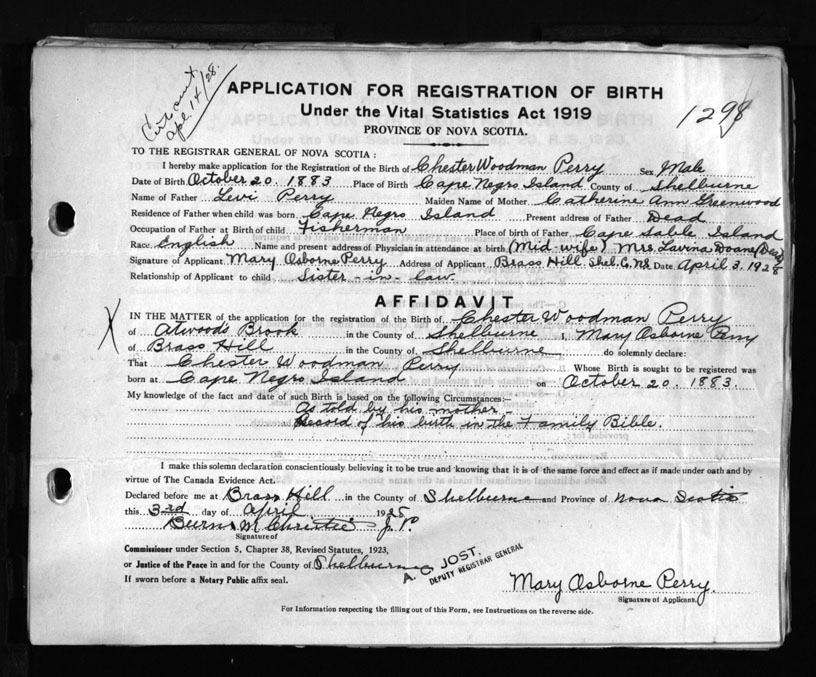 Cert sent
Apl 14/28.
APPLICATION FOR REGISTRATION OF BIRTH
1298
Under the Vital Statistics Act 1919
PROVINCE OF NOVA SCOTIA.
TO THE REGISTRAR GENERAL OF NOVA SCOTIA :
I hereby make application for the Registration of the Birth of Chester Woodman Perry Sex Male
Date of Birth October 20. 1883 Place of Birth Cape Negro Island County of Shelburne
Name of Father Levi Perry Maiden Name of Mother Catherine Ann Greenwood
Residence of Father when child was born Cape Negro Island Present address of Father Dead
Occupation of Father at Birth of child Fisherman Place of birth of Father Cape Sable Island
Race English Name and present address of Physician in attendance at birth (Mid-wife) Mrs. Lavina Doane (Dead)
Signature of Applicant Mary Osborne Perry Address of Applicant Brass Hill Shel. Co. NS Date April 3. 1928
Relationship of Applicant to child Sister-in-law
AFFIDAVIT
X
IN THE MATTER of the application for the registration of the Birth of Chester Woodman Perry
of Atwoods Brook in the County of Shelburne I, Mary Osborne Perry
of Brass Hill in the County of Shelburne do solemnly declare:
That Chester Woodman Perry Whose Birth is sought to be registered was
born at Cape Negro Island on October 20. 1883.
My knowledge of the fact and date of such Birth is based on the following Circumstances:—
As told by his mother-
Record of his birth in the Family Bible.
I make this solemn declaration conscientiously believing it to be true and knowing that it is of the same force and effect as if made under oath and by
virtue of The Canada Evidence Act.
Declared before me at Brass Hill in the County of Shelburne and Province of Nova Scotia
this 3rd day of April 1928
M Christie J.P.
Signature of
Commissioner under Section 5, Chapter 38, Revised Statutes, 1923,
or Justice of the Peace in and for the County of Shelburne
If sworn before a Notary Public affix seal.
A. C. JOST,
DEPUTY REGISTRAR GENERAL
Mary Osborne Perry.
Signature of Applicant.
For Information respecting the filling out of this Form, see Instructions on the reverse side.